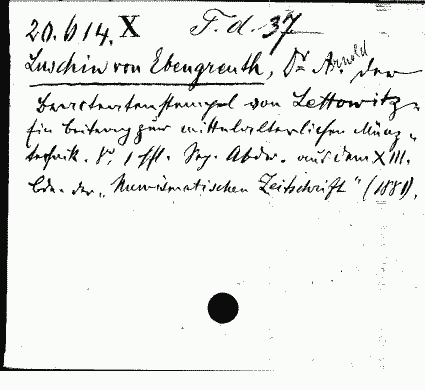 20.614. X T. d. 37
Luschin von Ebengreuth, Dr Arnold der
Brakteatenstempel von Lettowitz.
Ein Beitrag zur mittelalterlichen Münz-
technik. 8° 1 Hft. Sep. Abdr. aus dem XIII.
Bde. der „Numismatischen Zeitschrift" (1881).